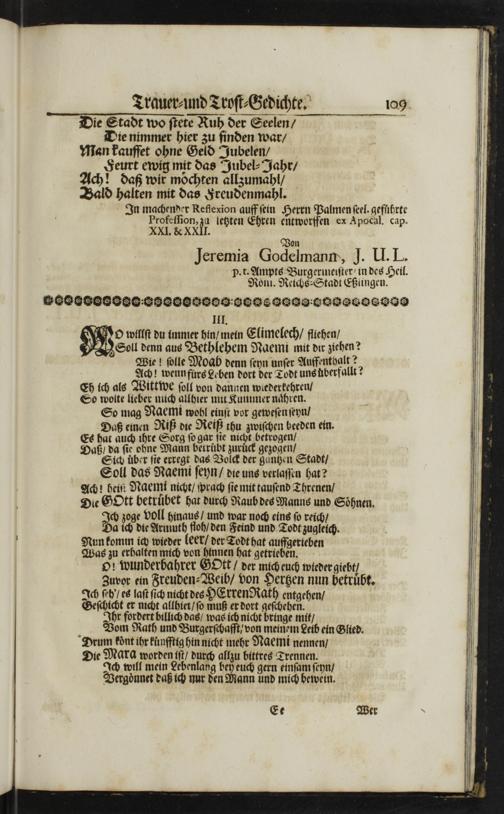 Trauer-und Trost-Gedichte. 109
Die Stadt wo stete Ruh der Seelen/
Die nimmer hier zu finden war/
Man kauffet ohne Geld Jubelen/
Feurt ewig mit das Jubel-Jahr/
Ach! daß wir möchten allzumahl/
Bald halten mit das Freudenmahl.
In machender Reflexion auff sein Herrn Palmen seel. geführte
Profession, zu letzten Ehren entworffen ex Apocal. cap.
XXI. & XXII.
Von
Jeremia Godelmann, J. U. L.
p. t. Ampts Burgermeister in des Heil.
Röm. Reichs-Stadt Eßlingen.
III.
WO willst du immer hin/ mein Elimelech/ fliehen/
Soll denn aus Bethlehem Naemi mit dir ziehen?
Wie! solle Moab denn seyn unser Auffenthalt?
Ach! wenn fürs Leben dort der Todt uns überfallt?
Eh ich als Wittwe soll von dannen wiederkehren/
So wolte lieber mich allhier mit Kummer nähren.
So mag Naemi wohl einst vor gewesen seyn/
Daß einen Riß die Reiß thu zwischen beeden ein.
Es hat auch ihre Sorg so gar sie nicht betrogen/
Daß/ da sie ohne Mann betrübt zurück gezogen/
Sich über sie erregt das Volck der gantzen Stadt/
Soll das Naemi seyn/ die uns verlassen hat?
Ach! heist Naemi nicht/ sprach sie mit tausend Threnen/
Die GOtt betrübet hat durch Raub des Manns und Söhnen.
Ich zoge voll hinaus/ und war noch eins so reich/
Da ich die Armuth floh/ den Feind und Todt zugleich.
Nun komm ich wieder leer/ der Todt hat auffgerieben
Was zu erhalten mich von hinnen hat getrieben.
O! wunderbahrer GOtt/ der mich euch wieder giebt/
Zuvor ein Freuden-Weib/ von Hertzen nun betrübt.
Ich seh'/ es last sich nicht des HErren Rath entgehen/
Geschicht er nicht allhier/ so muß er dort geschehen.
Ihr fordert billich das/ was ich nicht bringe mit/
Vom Rath und Burgerschafft/ von meinem Leib ein Glied.
Drum könt ihr künfftig hin nicht mehr Naemi nennen/
Die Mara worden ist/ durch allzu bittres Trennen.
Ich will mein Lebenlang bey euch gern einsam seyn/
Vergönnet daß ich nur den Mann und mich bewein.
Ee Wer